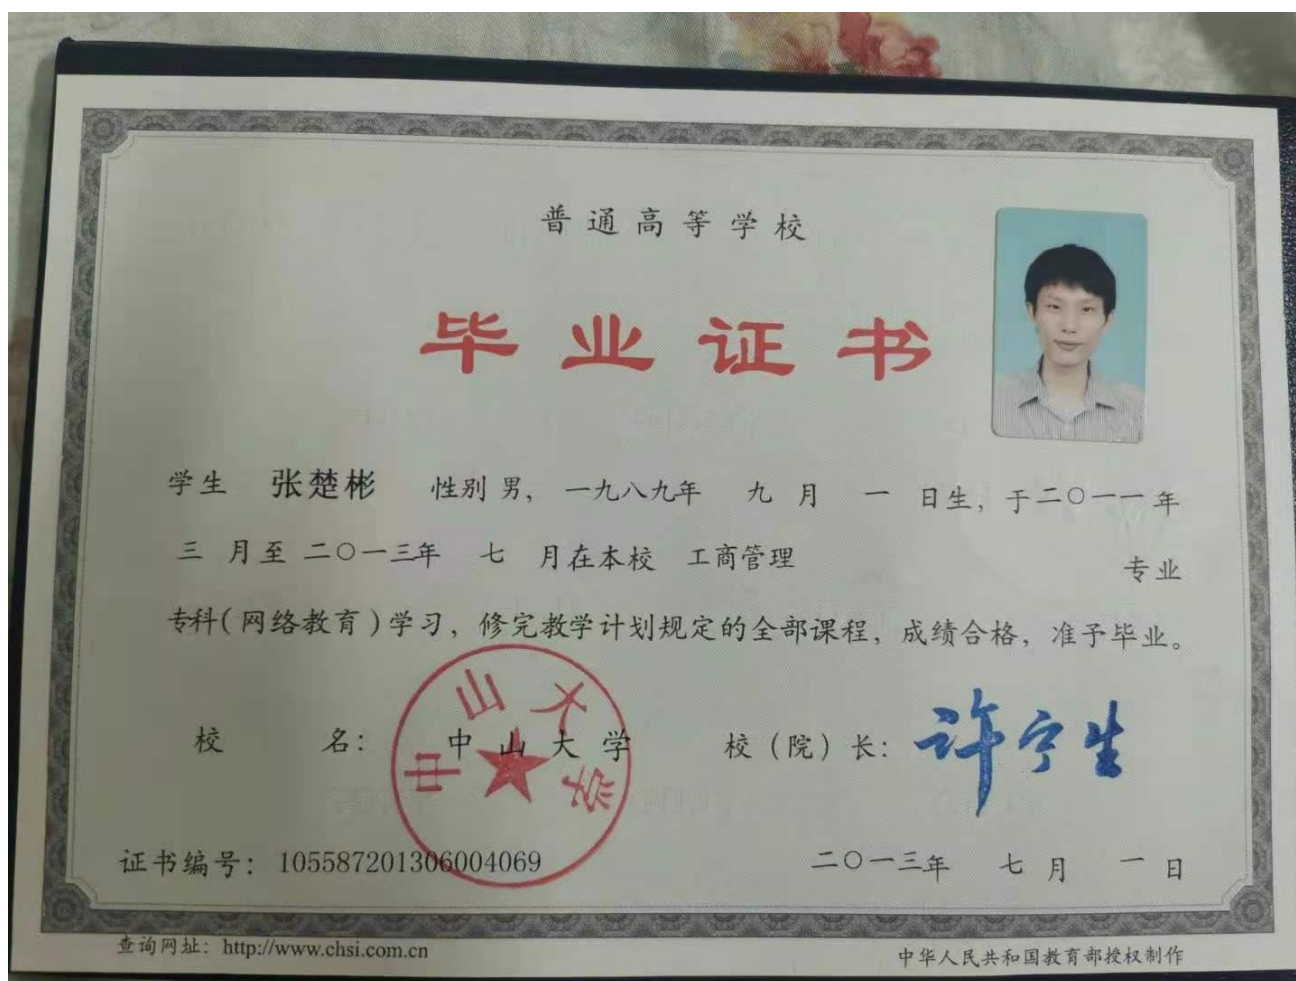 普通高等学校
毕业证书
学生 张楚彬 性别 男，一九八九年 九 月 一 日生，于二〇一一年
三 月至 二〇一三年 七 月在本校 工商管理 专业
专科(网络教育)学习，修完教学计划规定的全部课程，成绩合格，准予毕业。
校 名： 中山大学 校（院）长：许宁生
中山大学
证书编号：105587201306004069 二〇一三年 七 月 一 日
查询网址：http://www.chsi.com.cn 中华人民共和国教育部授权制作